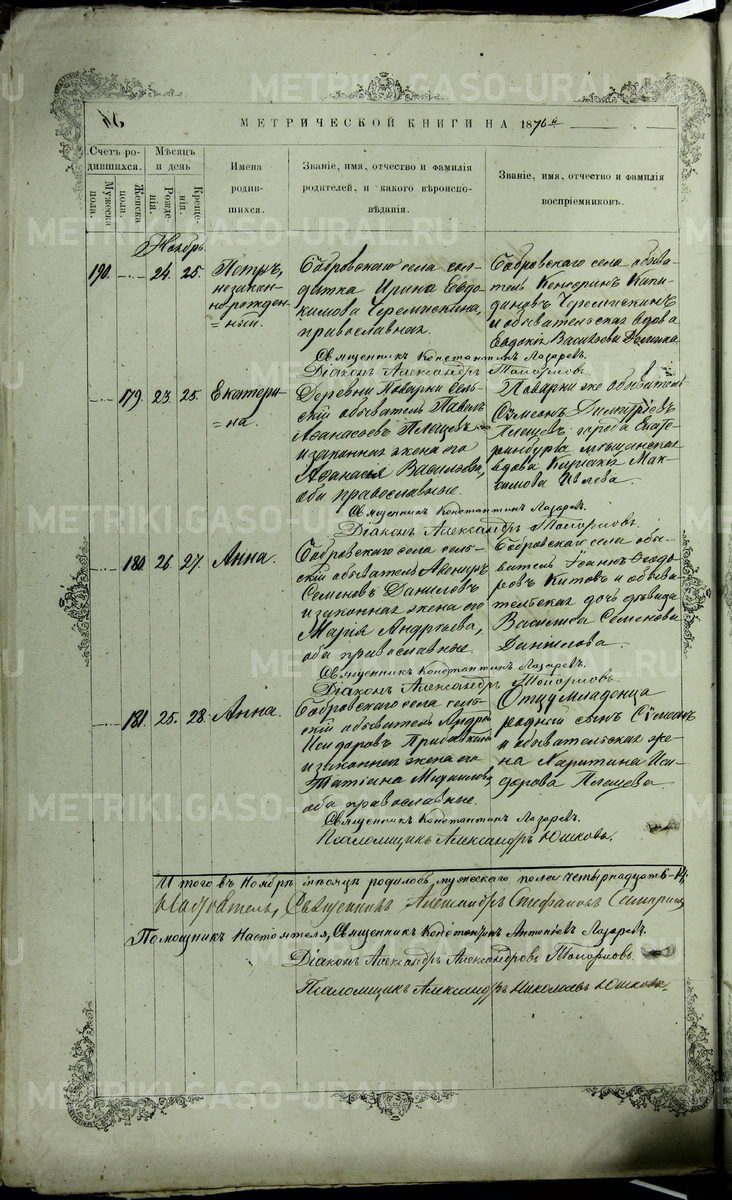 МЕТРИЧЕСКОЙ КНИГИ НА 1876й
Счетъ ро-
дившихся.
Мужеска
пола.
Женска
пола.
Мѣсяцъ
и день
Рожде-
нія.
Креще-
нія.
Имена
родив-
шихся.
Званіе, имя, отчество и фамилія
родителей, и какого вѣроиспо-
вѣданія.
Званіе, имя, отчество и фамилія
воспріемниковъ.
Ноябрь
190. 24. 25.
Петръ,
незакон-
но-рожден-
=ный.
Бобровскаго села сол-
датка Ирина Евдо-
кимова Черемискина,
православная.
Бобровскаго села обыва-
тель
Черемискинъ
и обывательская вдова
Евдокія Васильева
Священникъ Константинъ Лазаревъ.
Діаконъ Александръ Топорковъ.
179. 23. 25.
Екатери-
=на.
Деревни Поварни сель-
скій обыватель Павелъ
Аѳанасьевъ Плещевъ
и законная жена его
Аѳанасья Васильева,
оба православные.
Поварни же обыватель
Сѵмеонъ Димитріевъ
Плещевъ города Екате-
ринбурга мѣщанская
вдова Мак-
симова
Священникъ Константинъ Лазаревъ.
Діаконъ Александръ Топорковъ.
180. 26. 27.
Анна.
Бобровскаго села сель-
скій обыватель
Семеновъ Даниловъ
и законная жена его
Марія Андреева,
оба православные.
Бобровскаго села обы-
ватель Іоаннъ Ѳеодо-
ровъ Китовъ и обыва-
тельская дочь дѣвица
Василиса Семенова
Данилова.
Священникъ Константинъ Лазаревъ.
Діаконъ Александръ Топорковъ.
181. 25. 28.
Анна.
Бобровскаго села сель-
скій обыватель Андрей
Исидоровъ
и законная жена его
Татіана
оба православные.
Отцу младенца
родной сынъ Сѵмеонъ
и обывательская же-
на Харитина Иси-
дорова Плещева.
Священникъ Константинъ Лазаревъ.
Псаломщикъ Александръ Юшковъ.
Итого въ Ноябрѣ мѣсяцѣ родилось мужескаго пола четырнадцать-14.
Настоятель, Священникъ Александръ Стефановъ
Помощникъ Настоятеля, Священникъ Константинъ Антоніевъ Лазаревъ.
Діаконъ Александръ Александровъ Топорковъ.
Псаломщикъ Александръ Николаевъ Юшковъ.
METRIKI.GASO-URAL.RU